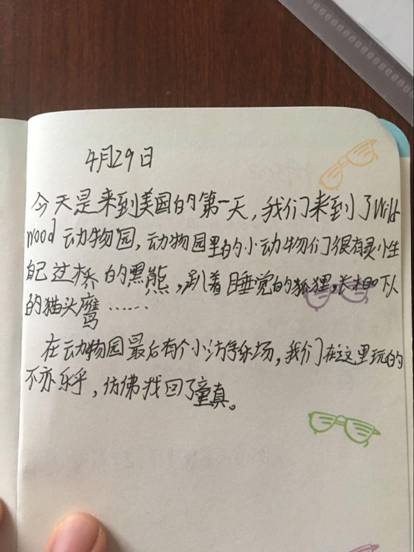 4月29日
今天是来到美国的第一天，我们来到了Wild
Wood动物园，动物园里的小动物们很有灵性
自己过桥的黑熊，趴着睡觉的狐狸，长相吓人
的猫头鹰……
在动物园最后有个小游乐场，我们在这里玩的
不亦乐乎，仿佛找回了童真。